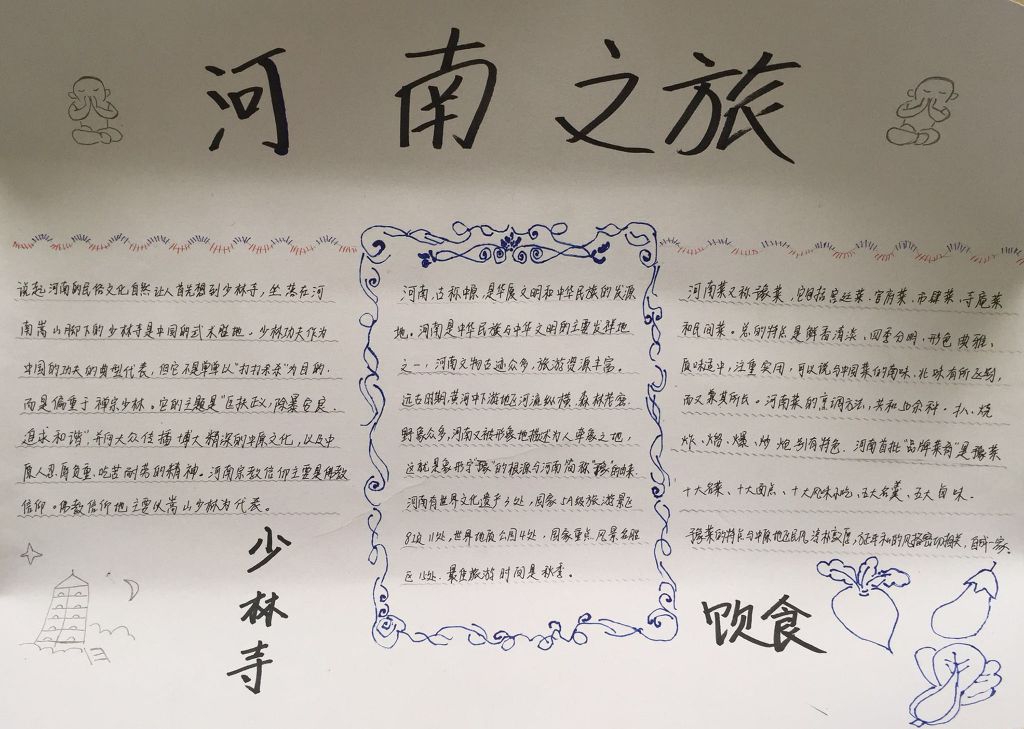 河南之旅
说起河南的民俗文化自然让人首先想到少林寺，坐落在河
南嵩山脚下的少林寺是中国的武术胜地。少林功夫作为
中国的功夫的典型代表，但它不是单单以“打打杀杀”为目的，
而是偏重于禅宗少林。它的主题是“匡扶正义，除暴安良，
追求和谐”并向大众传播博大精深的中原文化，以及中
原人忍辱负重、吃苦耐劳的精神。河南宗教信仰主要是佛教
信仰。佛教信仰地主要以嵩山少林为代表。
少林寺
河南，古称中原，是华夏文明和中华民族的发源
地。河南是中华民族与中华文明的主要发祥地
之一，河南文物古迹众多，旅游资源丰富。
远古时期，黄河中下游地区河流纵横，森林茂密，
野象众多，河南又被形象地描述为人牵象之地，
这就是象形字“豫”的根源与河南简称“豫”的由来。
河南有世界文化遗产3处，国家5A级旅游景区
8处11处，世界地质公园4处，国家重点风景名胜
区15处，最佳旅游时间是秋季。
河南菜又称豫菜，它包括宫廷菜、官府菜、市肆菜、寺庵菜
和民间菜。总的特点是鲜香清淡、四季分明、形色典雅、
质味适中，注重实用，可以说与中国菜的南味、北味有所区别，
而又兼其所长。河南菜的烹调方法，共有50余种。扒、烧
炸、熘、爆、炒、炝别有特色。河南首批“品牌菜肴”是豫菜
十大名菜、十大面点、十大风味小吃、五大名羹、五大卤味。
豫菜的特点与中原地区民风淳朴敦厚，中和的风格密切相关，自成一家。
饮食